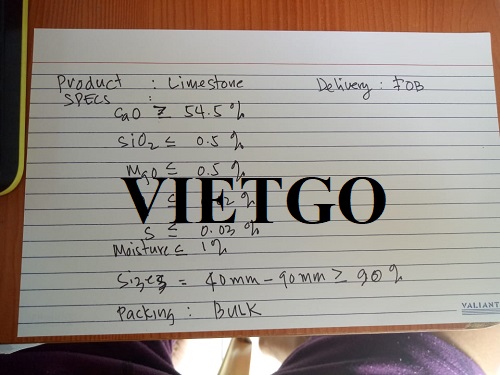 Product : Limestone Delivery : FOB
SPECS :
CaO ≥ 54.5 %
SiO2 ≤ 0.5 %
MgO ≤ 0.5 %
VIETGO
≤ 2 %
S ≤ 0.03 %
Moisture ≤ 1%
Sizes = 40mm - 90mm ≥ 90%
Packing : BULK
VALIANT